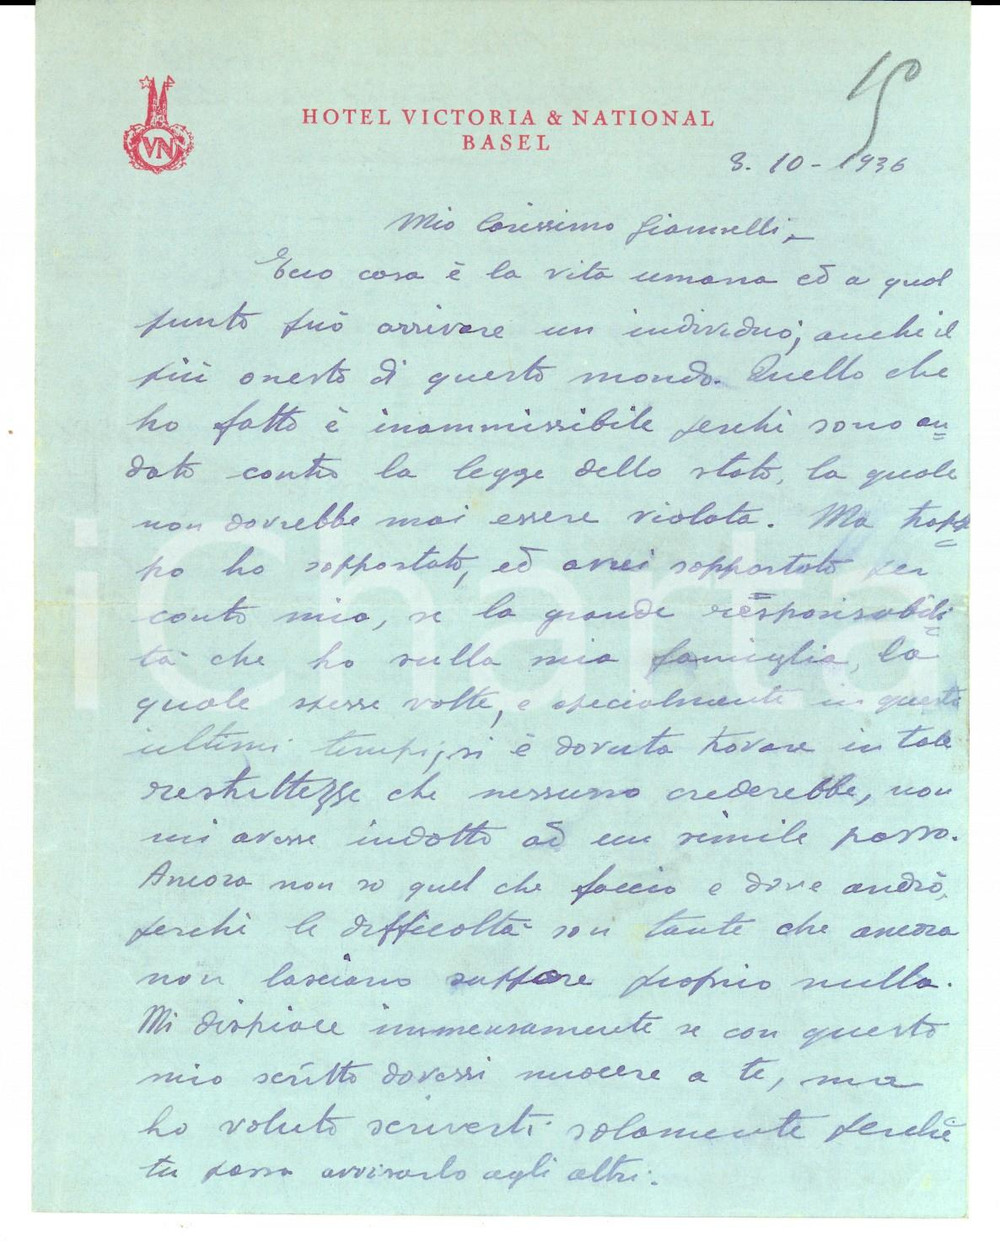 VN
HOTEL VICTORIA & NATIONAL
BASEL
8. 10 - 1936
Mio Carissimo
Ecco cosa è la vita umana ed a qual
punto può arrivare un individuo, anche il
più onesto di questo mondo. Quello che
ho fatto è inammissibile perchè sono an=
dato contro la legge dello stato, la quale
non dovrebbe mai essere violata. Ma trop=
po ho sopportato, ed avrei sopportato per
conto mio, se la grande responsabili=
tà che ho sulla mia famiglia, la
quale spesse volte, e specialmente in questi
ultimi tempi, si è dovuta trovare in tale
ristrettezze che nessuno crederebbe, non
mi avesse indotto ad un simile passo.
Ancora non so quel che faccio e dove andrò,
perchè le difficoltà son tante che ancora
non lasciano sapere proprio nulla.
Mi dispiace immensamente se con questo
mio scritto dovessi nuocere a te, ma
ho voluto scriverti solamente perchè
tu possa avvisarlo agli altri.
iCharta